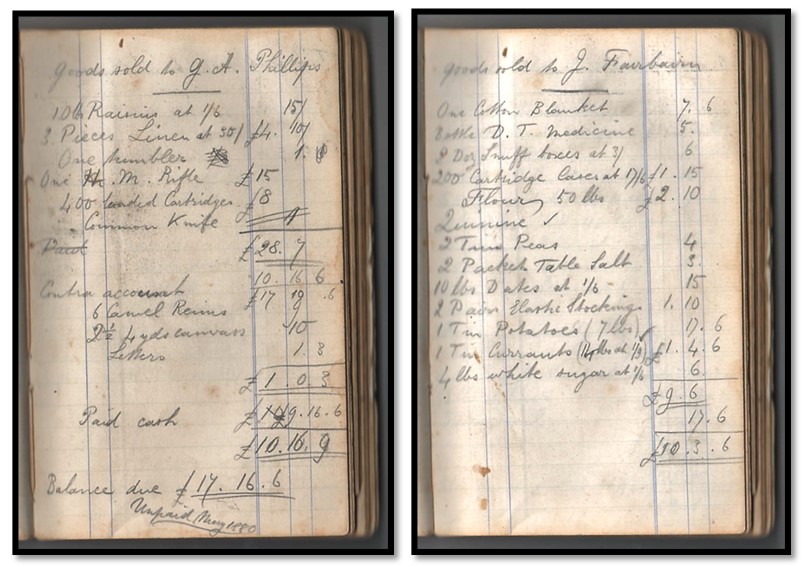 Goods sold to G. A. Phillips
10 lb Raisins at 1/6 15/
3 Pieces Linen at 30/ £4. 10/
One tumbler 1.
One H. M. Rifle £15
400 loaded Cartridges £8
Common Knife 1
Paid £28. 7
10. 16 6
Contra account £17 19 .6
6 Camel Reims 9
2½ 4 yds canvass 10
Letters 1. 3
£1. 0. 3
Paid cash £ 9. 16. 6
£10. 16. 9
Balance due £17. 16. 6
Unpaid May 1880
Goods sold to J. Fairbairn
One Cotton Blanket 7. 6
Bottle D. T. Medicine 5.
Doz Snuff boxes at 3/ 6
200 Cartridge Cases at 17/6 £1. 15
Flour 50 lbs £2. 10
Quinine ✓
2 Tins Peas 4
2 Packet Table Salt 3.
10 lbs Dates at 1/6 15
2 Pairs Elastic Stockings 1. 10
1 Tin Potatoes (7 lbs) 17. 6
1 Tin Currants (14 lbs at 1/9) £1. 4. 6
4 lbs white sugar at 1/6 6.
£9. 6
17. 6
£10. 3. 6